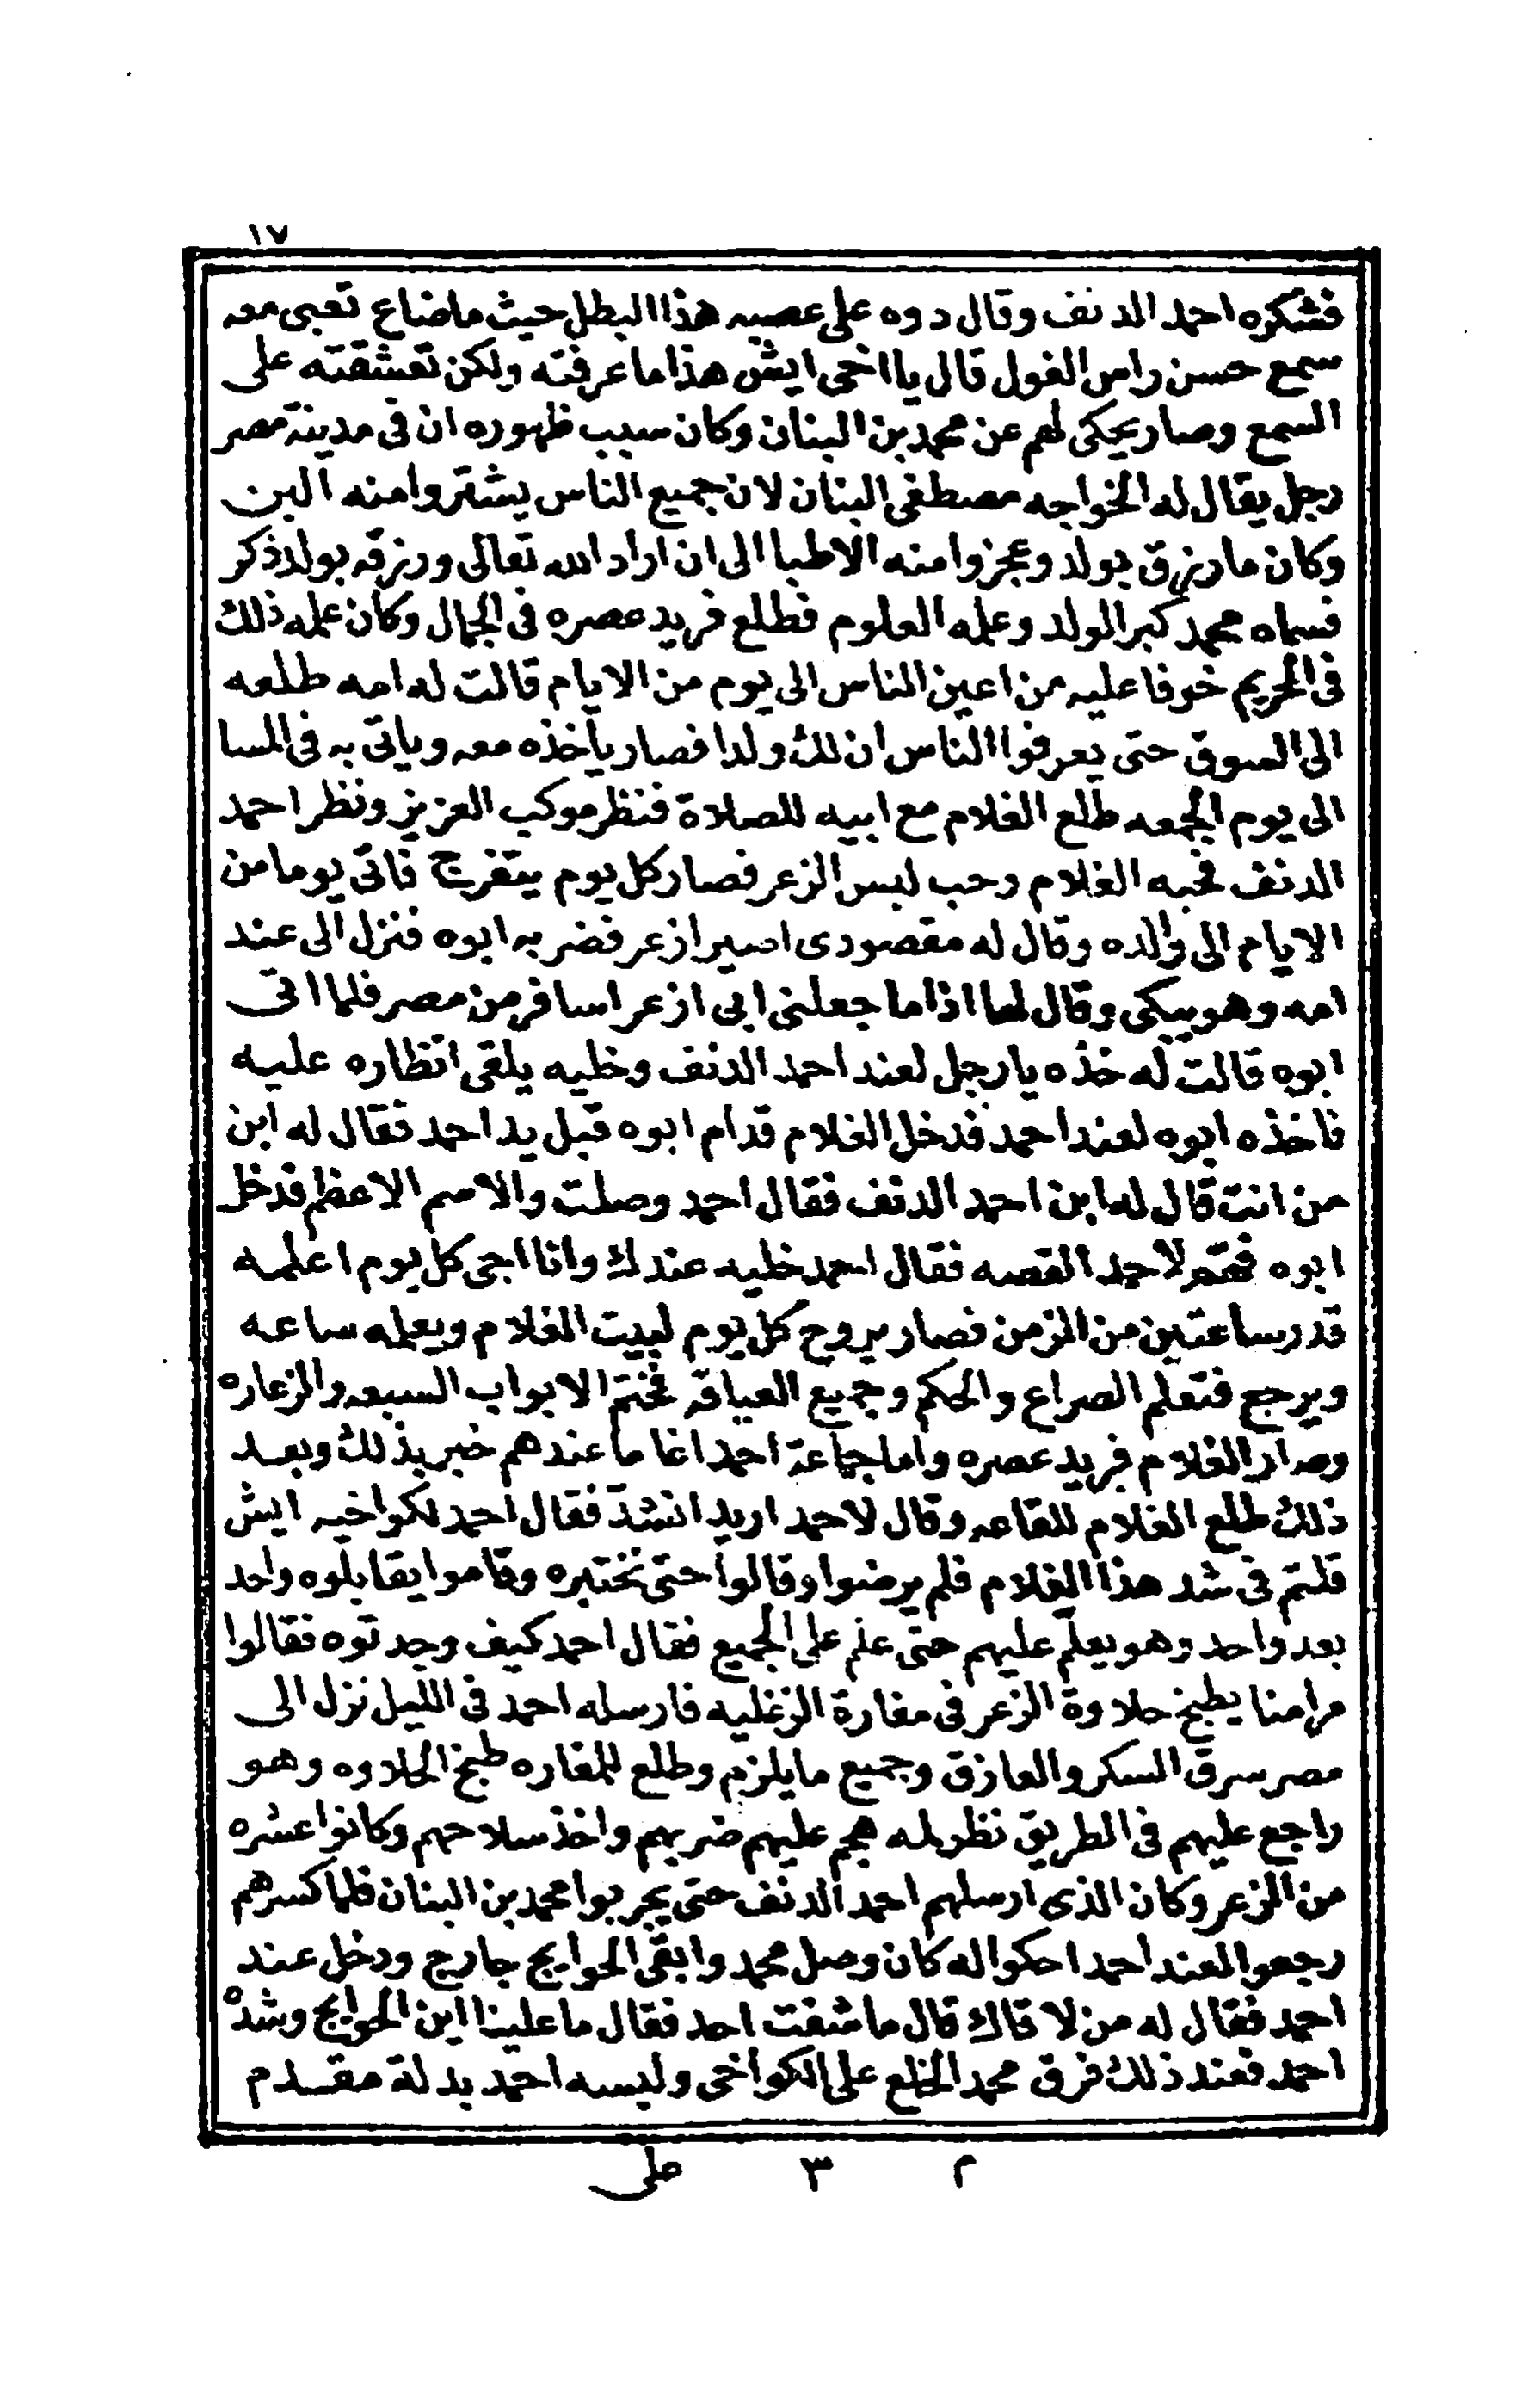 ١٧
فشكره احمد الدنف وقال دوه على عصبيه هذا البطل حيث ما ضاع تعبى معه
سمع حسن راس الغول قال يا اخى ايش هذا ما عرفته ولكن تعشقته على
السمع وصار يحكى لهم عن محمد بن البنان وكان سبب ظهوره ان فى مدينة مصر
رجل يقال له الخواجه مصطفى البنان لان جميع الناس يشتروا منه البن
وكان ما رزق بولد وعجزوا منه الاطبا الى ان اراد الله تعالى ورزقه بولد ذكر
فسماه محمد كبر الولد وعلمه العلوم فطلع فريد عصره فى الجمال وكان علمه ذلك
فى الحريم خوفا عليه من اعين الناس الى يوم من الايام قالت له امه طلعه
الى السوق حتى يعرفوا الناس ان لك ولدا فصار ياخذه معه وياتى به فى المسا
الى يوم الجمعه طلع الغلام مع ابيه للصلاة فنظر موكب العزيز ونظر احمد
الدنف فحبه الغلام وحب لبس الزعر فصار كل يوم يتفرج فاتى يوما من
الايام الى والده وقال له مقصودى اصير ازعر فضربه ابوه فنزل الى عند
امه وهو يبكى وقال لها اذا ما جعلنى ابى ازعر اسافر من مصر فلما اتى
ابوه قالت له خذه يا رجل لعند احمد الدنف وخليه يلقى انظاره عليه
فاخذه ابوه لعند احمد فدخل الغلام قدام ابوه قبل يد احمد فقال له ابن
من انت قال له ابن احمد الدنف فقال احمد وصلت والاسم الاعظم فدخل
ابوه لاحمد القصه فقال احمد خليه عندك وانا اجى كل يوم اعلمه
قدر ساعتين من الزمن فصار يروح كل يوم لبيت الغلام ويعلمه ساعه
ويرجع فتعلم الصراع والحكم وجميع العياقه فختم الابواب السبعه والزعاره
وصار الغلام فريد عصره واما جماعة احمد اغا ما عندهم خبر بذلك وبعد
ذلك طلع الغلام للقاعه وقال لاحمد اريد انشد فقال احمد لكواخيه ايش
قلتم فى شد هذا الغلام فلم يرضوا وقالوا حتى نختبره وقاموا يقابلوه واحد
بعد واحد وهو يعلم عليهم حتى علم على الجميع فقال احمد كيف وجدتوه فقالوا
مرامنا يطبخ حلاوة الزعر فى مغارة الزغليه فارسله احمد فى الليل نزل الى
مصر سرق السكر والعازق وجميع ما يلزم وطلع للمغاره طبخ الحلاوه وهو
راجع عليهم فى الطريق نظر لمه هجم عليهم ضربهم واخذ سلاحهم وكانوا عشره
من الزعر وكان الذى ارسلهم احمد الدنف حتى يجربوا محمد بن البنان فلما كسرهم
رجعوا لعند احمد احكوا له كان وصل محمد وابقى الحوايج خارج ودخل عند
احمد فقال له من لاقاك قال ما شفت احد فقال ما علينا اين الحوايج وشده
احمد فعند ذلك فرق محمد الخلع على الكواخى ولبسه احمد بدلة مقدم
٢ ٣ على